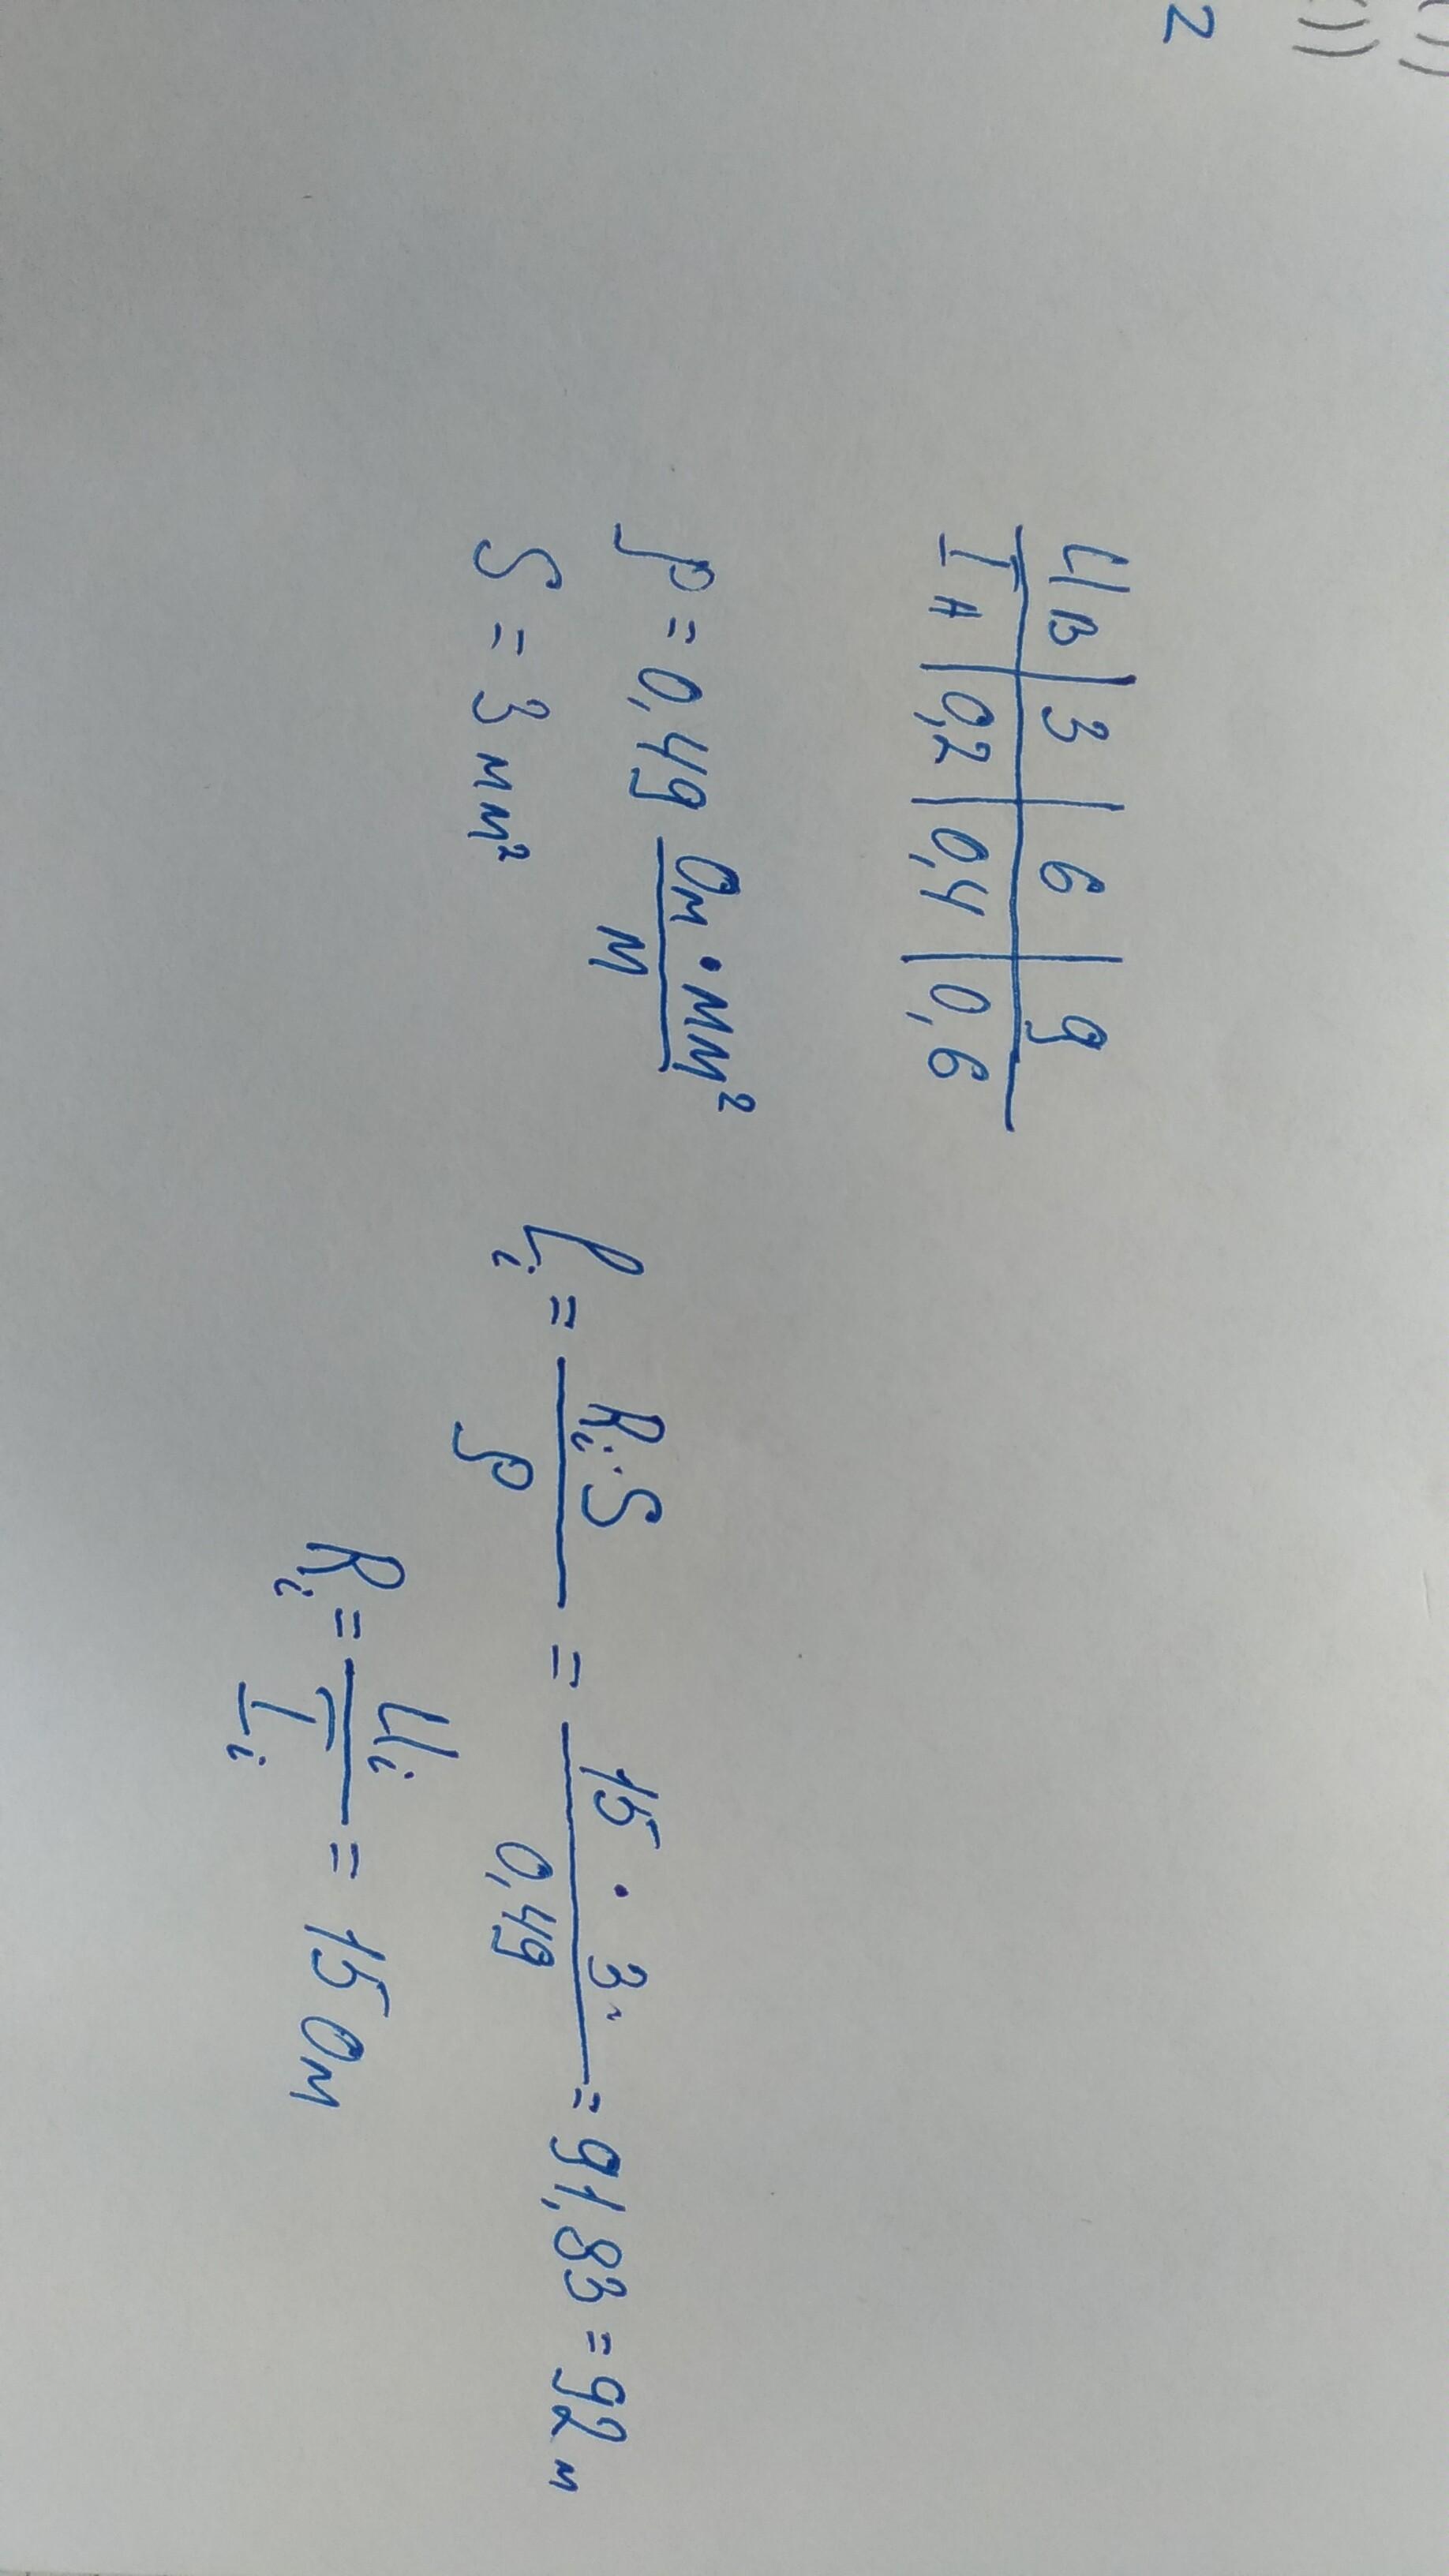 ))
))
2
U В | 3 | 6 | 9
I А | 0,2 | 0,4 | 0,6
ρ = 0,49 Ом · мм² / м
S = 3 мм²
l_i = R_i · S / ρ = 15 · 3 / 0,49 = 91,83 = 92 м
R_i = U_i / I_i = 15 Ом